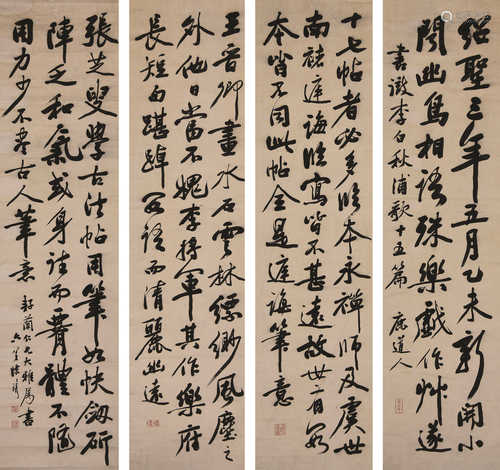 绍聖三年五月乙未新開小
閣幽鳥相語殊樂戲作艸遂
書徹李白秋浦歌十五篇
鹿道人
十七帖者必多臨本永禪師及虞世
南褚庭誨臨寫皆不甚遠故世有數
本皆不同此帖全是庭誨筆意
王晋卿畫水石雲林縹緲風塵之
外他日當不愧李將軍其作樂府
長短句踸踔口語而清麗幽遠
張芝叟學古法帖用筆如快劍斫
陣乏和氣或身訣而骨體不隨
用力少不盡古人筆意
仁兄大雅屬書